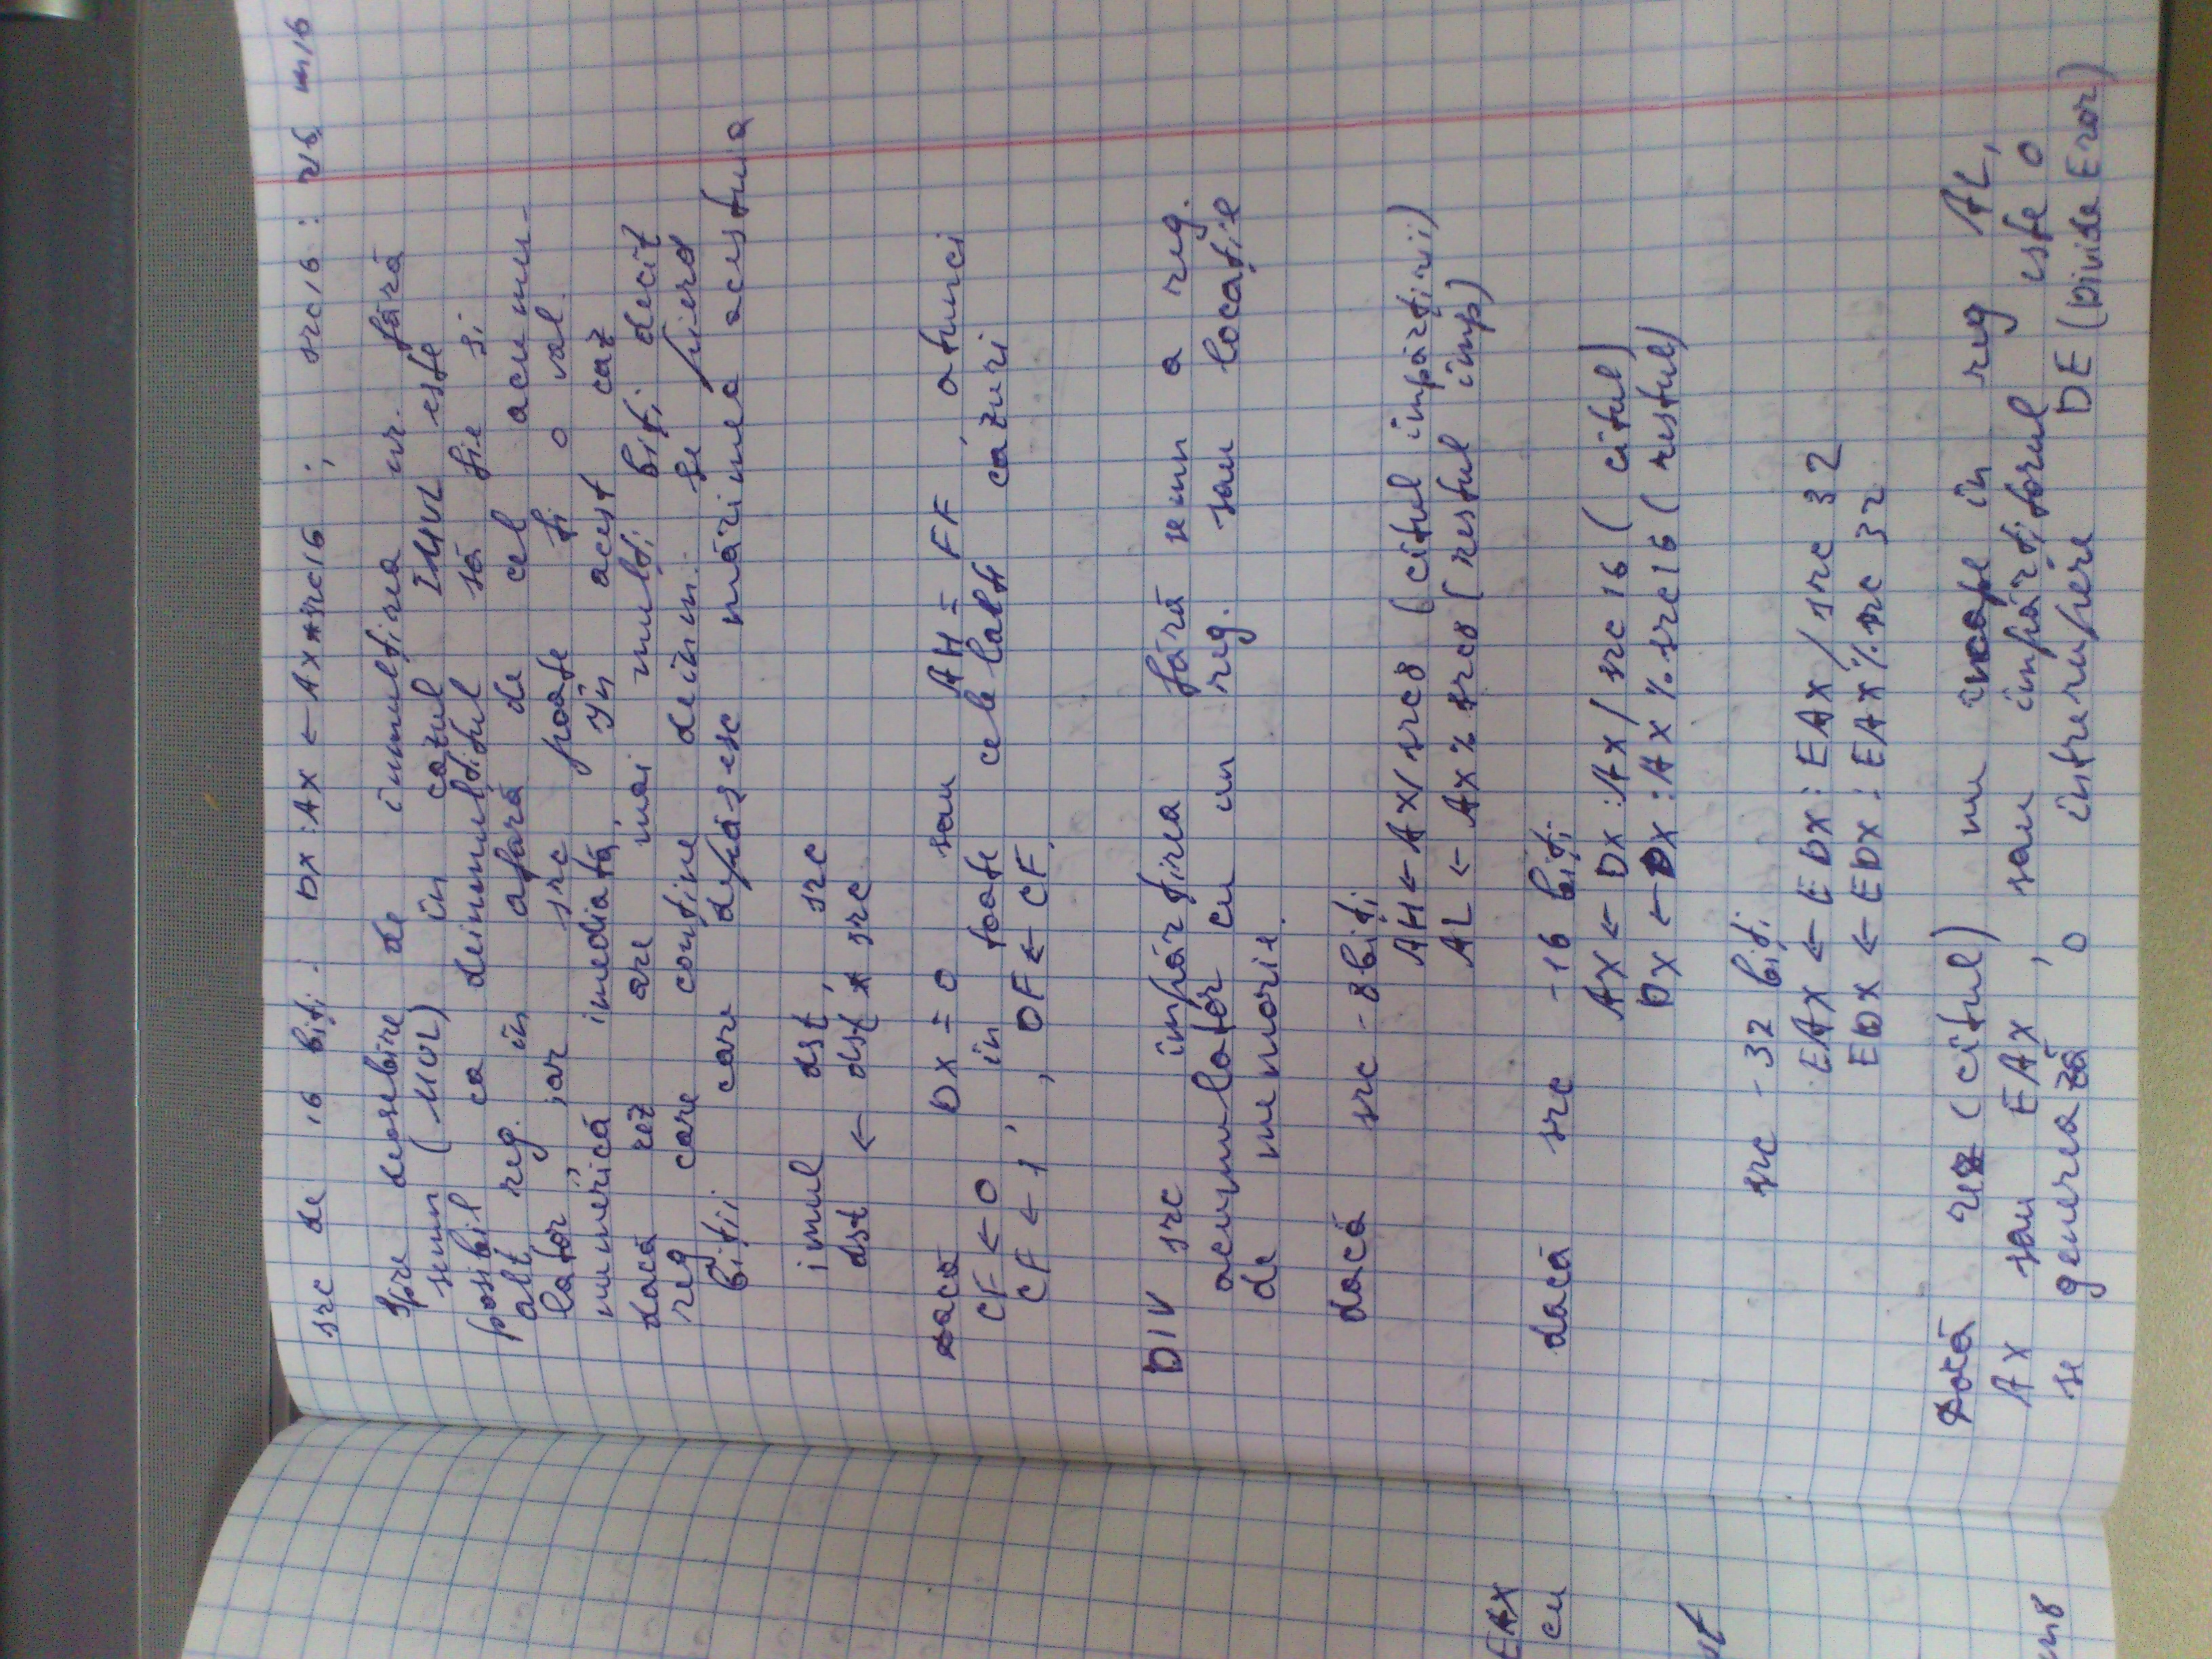 src de 16 biți: DX:AX ← AX*src16 ; src16: r16, m16
Spre deosebire de înmulțirea nr. fără
semn (MUL) în cazul IMUL este
posibil ca deînmulțitul să fie și
alt reg. în afară de cel acumu-
lator iar src poate fi o val.
numerică imediată, în acest caz
dacă rez are mai mulți biți decît
reg care conține deînm. se pierd
biții care depăsesc mărimea acestuia
imul dst, src
dst ← dst * src
Dacă DX = 0 sau AH = FF, atunci
CF ← 0 în toate celelalte cazuri
CF ← 1, OF ← CF
DIV src împărțirea fără semn a reg.
acumulator cu un reg. sau locație
de memorie.
dacă src - 8biți
AH ← AX/src8 (cîtul împărțirii)
AL ← AX % src8 (restul împ)
dacă src - 16 biți
AX ← DX:AX/src16 (cîtul)
DX ← DX:AX % src16 (restul)
src - 32 biți
EAX ← EDX:EAX/src 32
EDX ← EDX:EAX % src 32
Dacă rez (cîtul) nu încape în reg AL,
AX sau EAX, sau împărțitorul este 0
se generează o întrerupere DE (Divide Eror)
EAX
cu